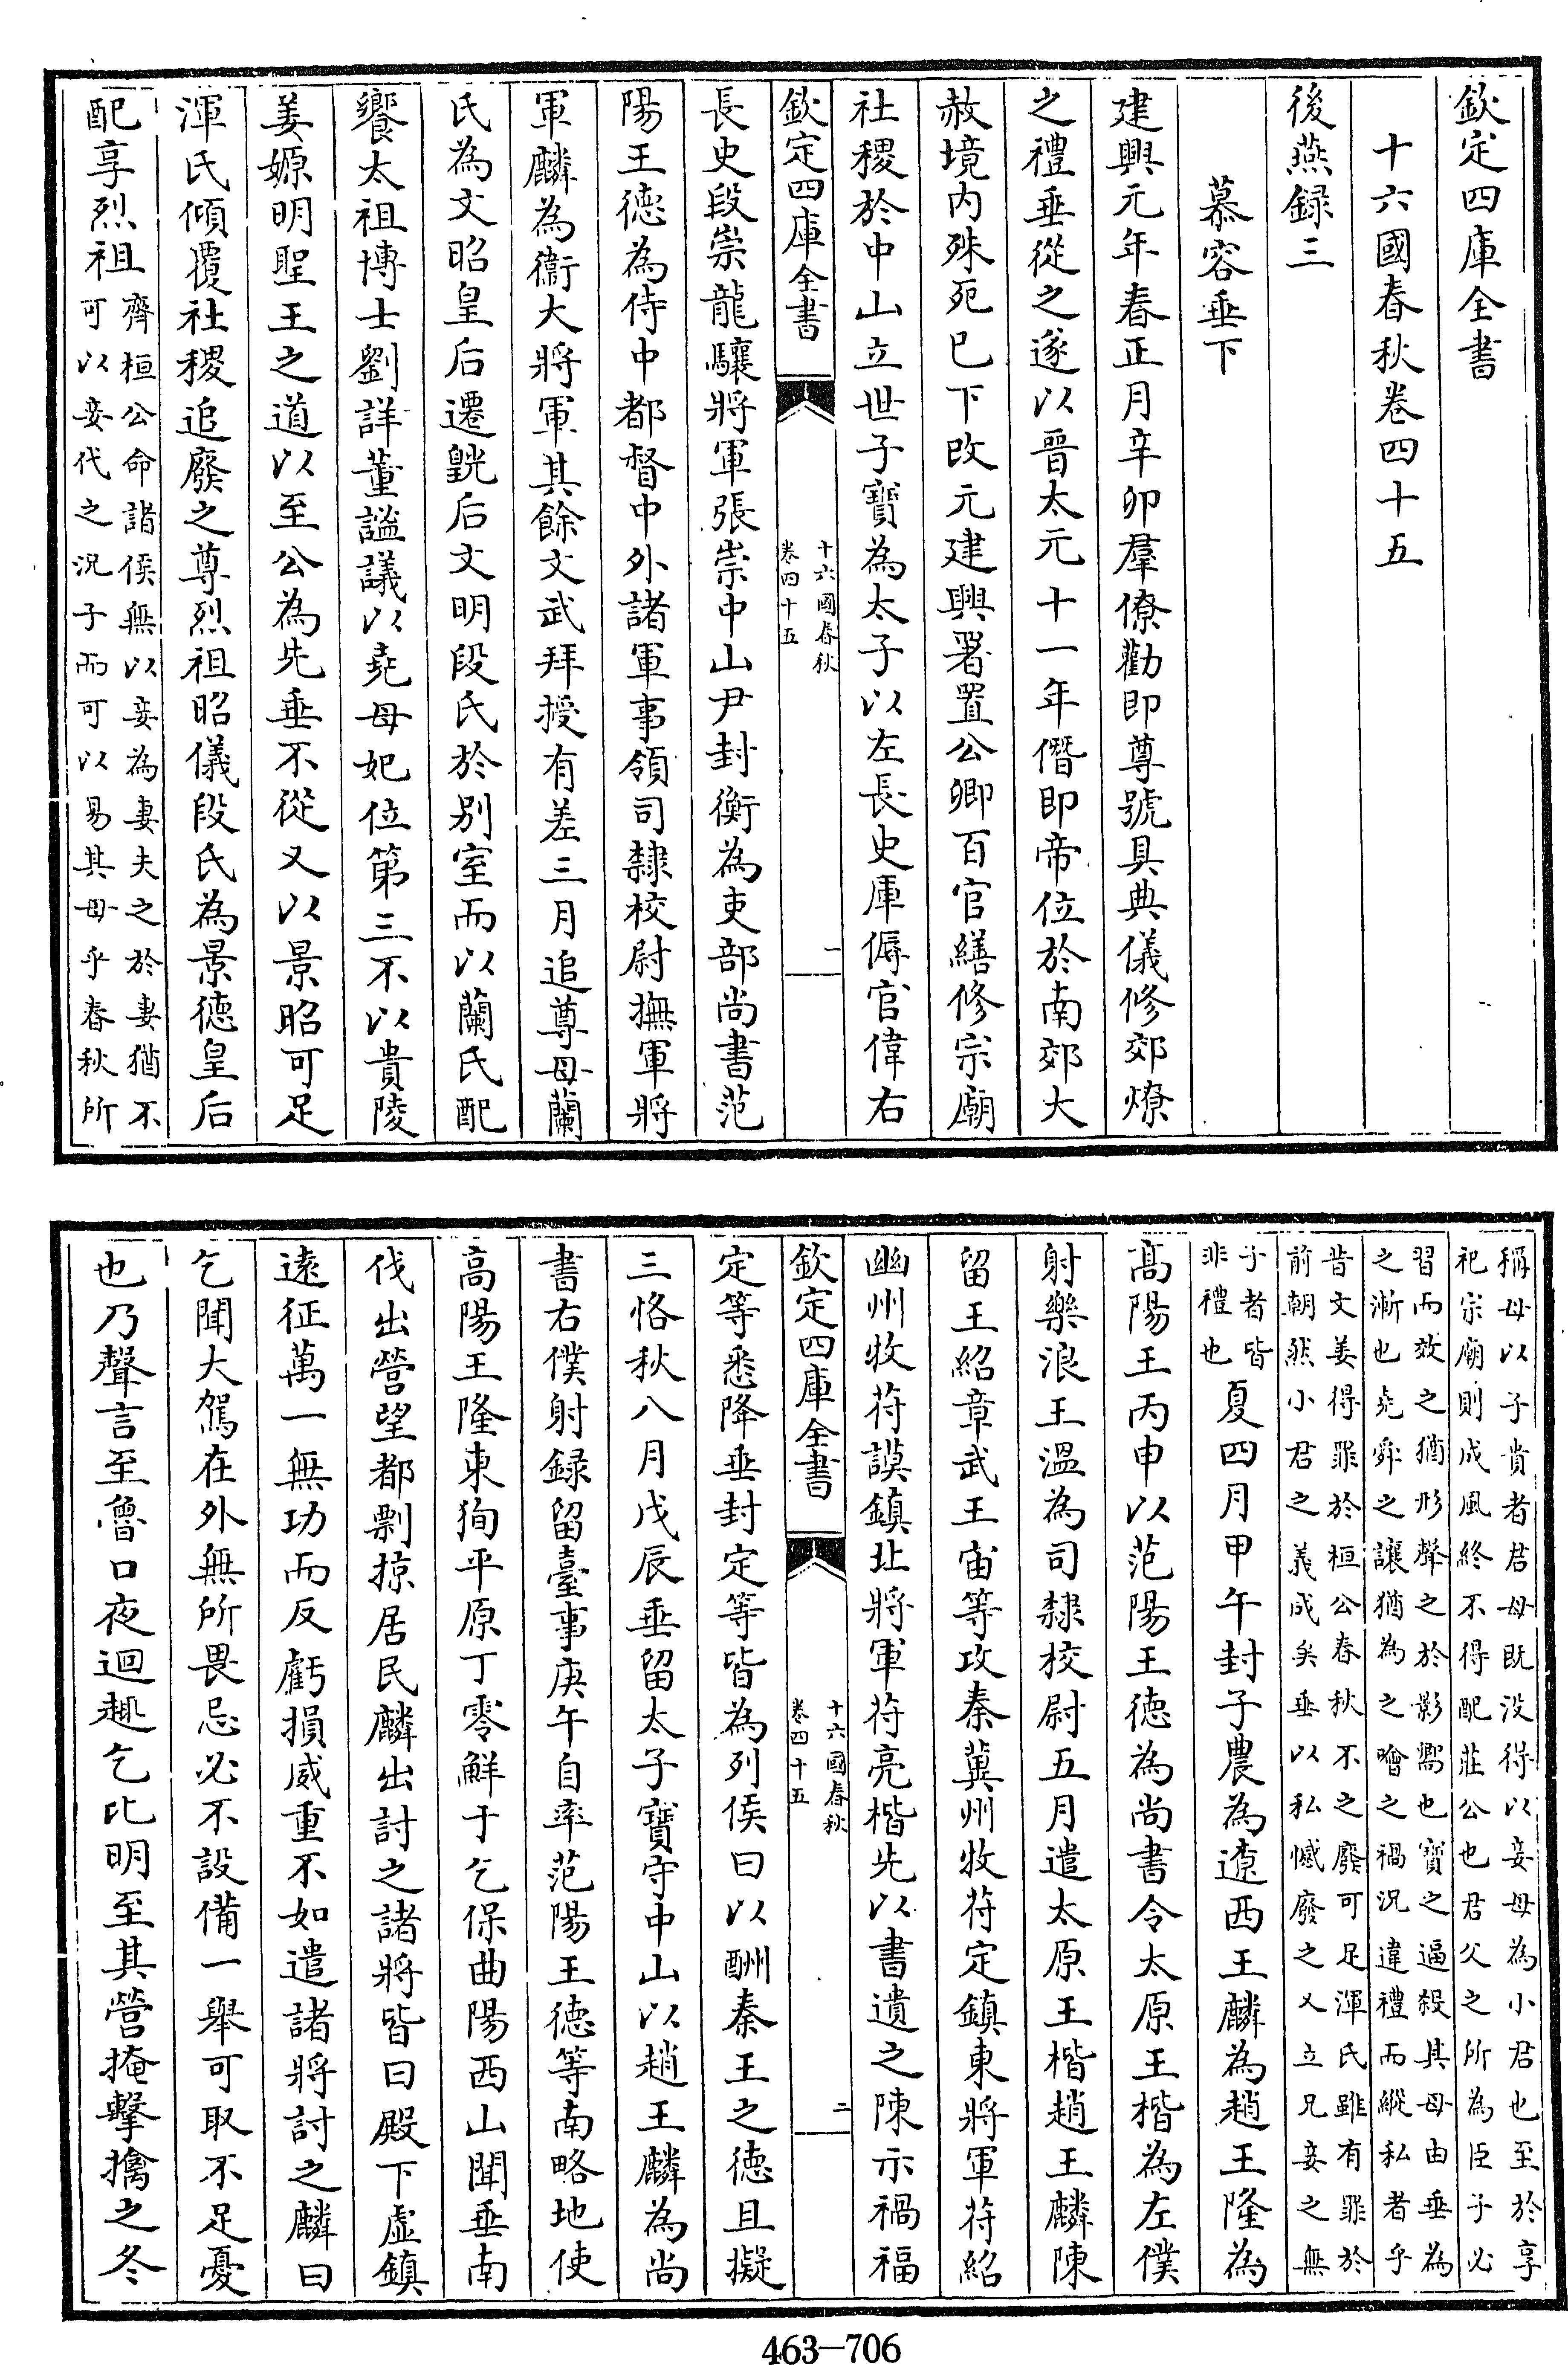 欽定四庫全書
十六國春秋卷四十五
後燕録三
慕容垂下
建興元年春正月辛卯羣僚勸即尊號具典儀修郊燎
之禮垂從之遂以晉太元十一年僭即帝位於南郊大
赦境内殊死已下改元建興署置公卿百官繕修宗廟
社稷於中山立世子寶為太子以左長史庫傉官偉右
欽定四庫全書
十六國春秋
卷四十五
一
長史段崇龍驤將軍張崇中山尹封衡為吏部尚書范
陽王德為侍中都督中外諸軍事領司隸校尉撫軍將
軍麟為衞大將軍其餘文武拜授有差三月追尊母蘭
氏為文昭皇后遷皝后文明段氏於别室而以蘭氏配
饗太祖博士劉詳董謐議以堯母妃位第三不以貴陵
姜嫄明聖王之道以至公為先垂不從又以景昭可足
渾氏傾覆社稷追廢之尊烈祖昭儀段氏為景德皇后
配享烈祖
齊桓公命諸侯無以妾為妻夫之於妻猶不
可以妾代之況子而可以易其母乎春秋所
稱母以子貴者君母既没得以妾母為小君也至於享
祀宗廟則成風終不得配莊公也君父之所為臣子必
習而效之猶形聲之於影響也寶之逼殺其母由垂為
之漸也堯舜之讓猶為之噲之禍況違禮而縱私者乎
昔文姜得罪於桓公春秋不之廢可足渾氏雖有罪於
前朝然小君之義成矣垂以私憾廢之又立兄妾之無
子者皆
非禮也
夏四月甲午封子農為遼西王麟為趙王隆為
高陽王丙申以范陽王德為尚書令太原王楷為左僕
射樂浪王溫為司隸校尉五月遣太原王楷趙王麟陳
留王紹章武王宙等攻秦冀州牧苻定鎮東將軍苻紹
幽州牧苻謨鎮北將軍苻亮楷先以書遺之陳示禍福
欽定四庫全書
十六國春秋
卷四十五
二
定等悉降垂封定等皆為列侯曰以酬秦王之德且擬
三恪秋八月戊辰垂留太子寶守中山以趙王麟為尚
書右僕射録留臺事庚午自率范陽王德等南略地使
高陽王隆東狥平原丁零鮮于乞保曲陽西山聞垂南
伐出營望都剽掠居民麟出討之諸將皆曰殿下虚鎮
遠征萬一無功而反虧損威重不如遣諸將討之麟曰
乞聞大駕在外無所畏忌必不設備一舉可取不足憂
也乃聲言至魯口夜迴趣乞比明至其營掩擊擒之冬
463—706